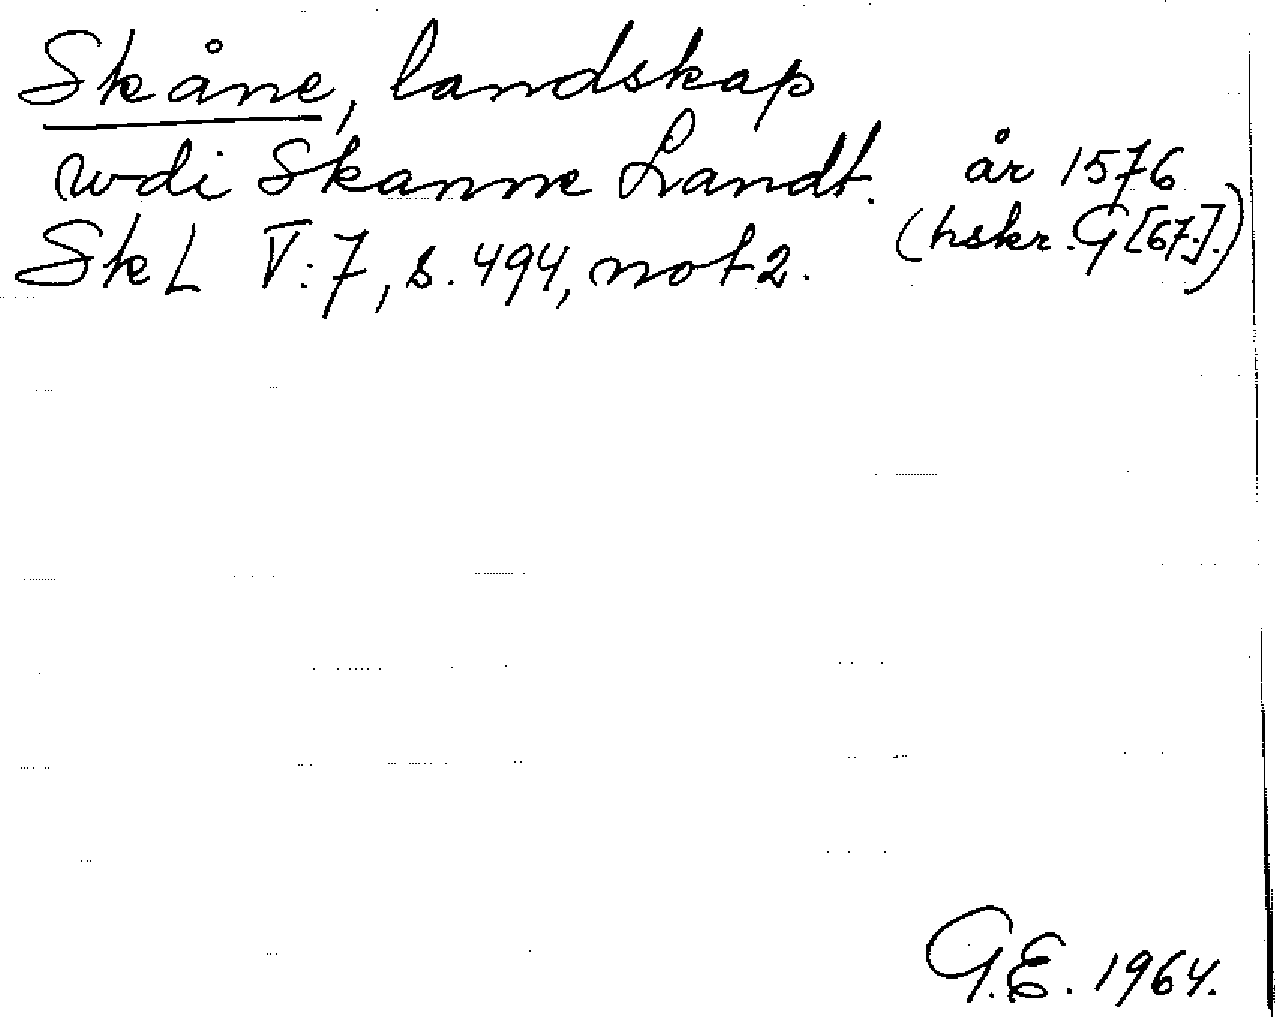 Skåne, landskap
wdi Skanne Landt. år 1576
(hskr. G [67.].)
SkL V:7, s. 494, not 2.
G.E. 1964.